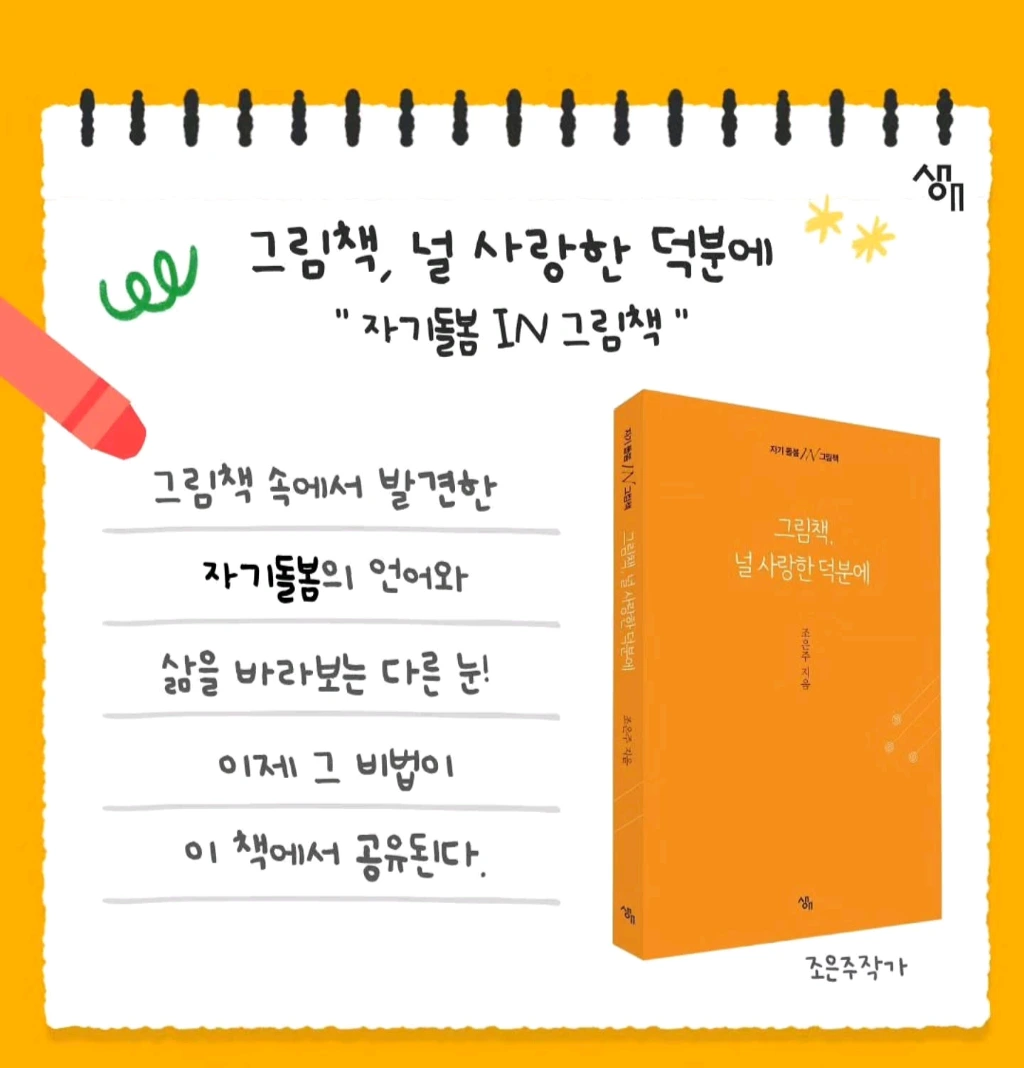 생애
그림책, 널 사랑한 덕분에
" 자기돌봄 IN 그림책 "
그림책 속에서 발견한
자기돌봄의 언어와
삶을 바라보는 다른 눈!
이제 그 비법이
이 책에서 공유된다.
자기 돌봄 IN 그림책
그림책, 널 사랑한 덕분에
조은주 지음
생애
자기 돌봄 IN 그림책
그림책,
널 사랑한 덕분에
조은주 지음
생애
조은주작가